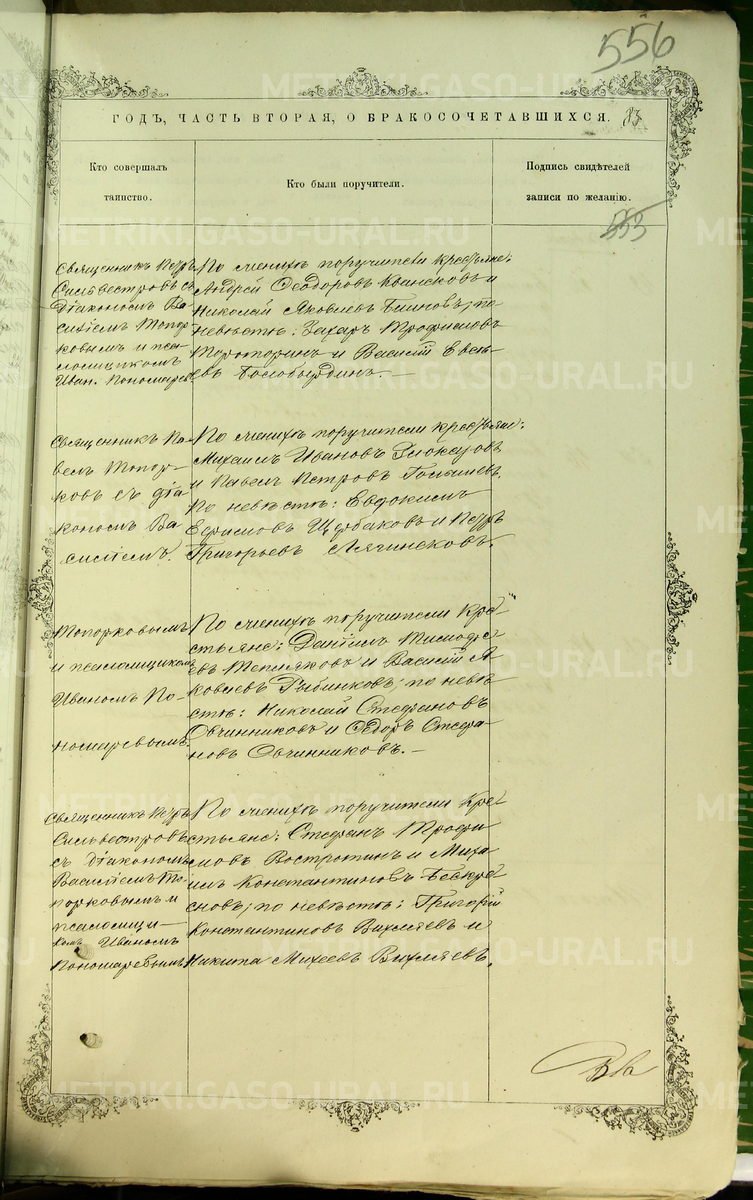 556
ГОДЪ, ЧАСТЬ ВТОРАЯ, О БРАКОСОЧЕТАВШИХСЯ.
Кто совершалъ
таинство.
Кто были поручители.
Подпись свидѣтелей
записи по желанію.
553
Священникъ Петръ
Сильвестровъ съ
Діакономъ Ва-
силіемъ Топор-
ковымъ и пса-
ломщикомъ
Иван. Пономарев.
По женихѣ поручители крестьяне:
Андрей Ѳеодоровъ и
Николай Яковлевъ по
невѣстѣ: Захаръ Трофимовъ
и Василій Евсѣ-
евъ
Священникъ Па-
велъ Топор-
ковъ съ діа-
кономъ Ва
силіемъ
По женихѣ поручители крестьяне:
Михаилъ Ивановъ
и Павелъ Петровъ
По невѣстѣ: Евдокимъ
Ефимовъ Щербаковъ и Петръ
Григорьевъ
Топорковымъ
и псаломщикомъ
Иваномъ По-
номаревымъ.
По женихѣ поручители Кре
стьяне: Даніилъ Тимоѳе
евъ Тепляковъ и Василій Я
ковлевъ Рыбинковъ; по невѣ
стѣ: Николай Стефановъ
Овчинниковъ и Ѳедоръ Стефа
новъ Овчинниковъ. —
Священникъ Петръ
Сильвестровъ
съ діакономъ
Василіемъ То-
порковымъ и
псаломщи-
комъ Иваномъ
Пономаревымъ
По женихѣ поручители Кре
стьяне: Стефанъ Трофи
мовъ Востротинъ и Миха
илъ Константиновъ
по невѣстѣ: Григорій
Константиновъ Вихляевъ и
Никита Михеевъ Вихляевъ.
METRIKI.GASO-URAL.RU